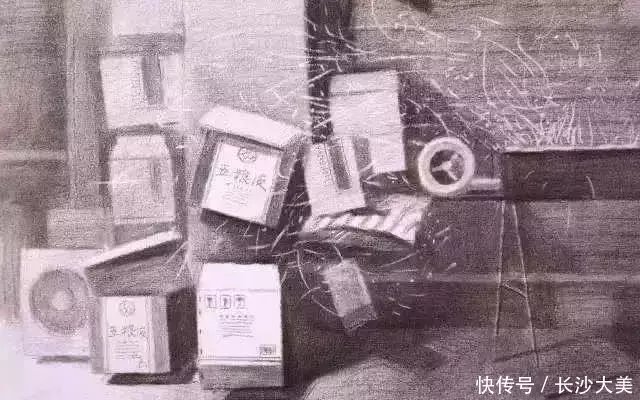 五粮液
五粮液
快传号 / 长沙大美